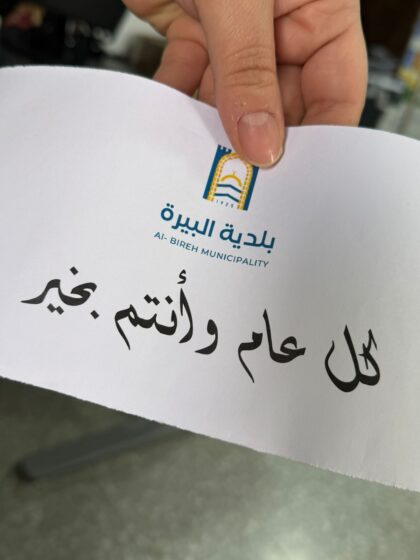 بلدية البيرة
Al- BIREH MUNICIPALITY
كل عام وأنتم بخير